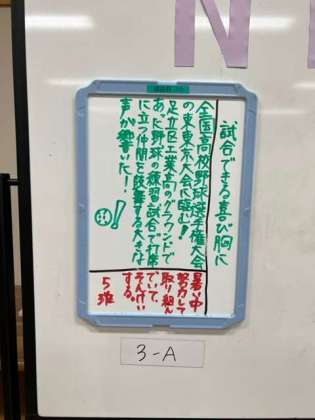 試合できる喜び胸に
全国高校野球選手権大会
の東東京大会に臨む!
足立区工業高のグラウンドで
あった野球の練習試合で打席
に立つ仲間を鼓舞する大きな
声が響いた!
暑い中
努力して
取り組ん
でいて、
そんけい
する。
5班
3-A
N